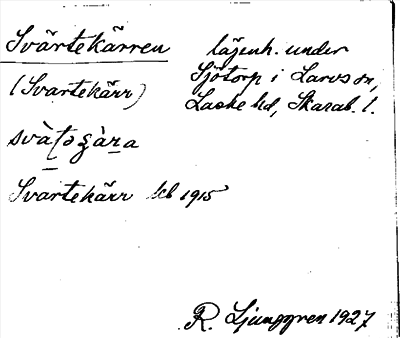 Svärtekärren
lägenh. under
Sjötorp i Larvs sn,
(Svartekärr)
Laske hd, Skarab. l.
Svartekärr kb 1915
R. Ljunggren 1927